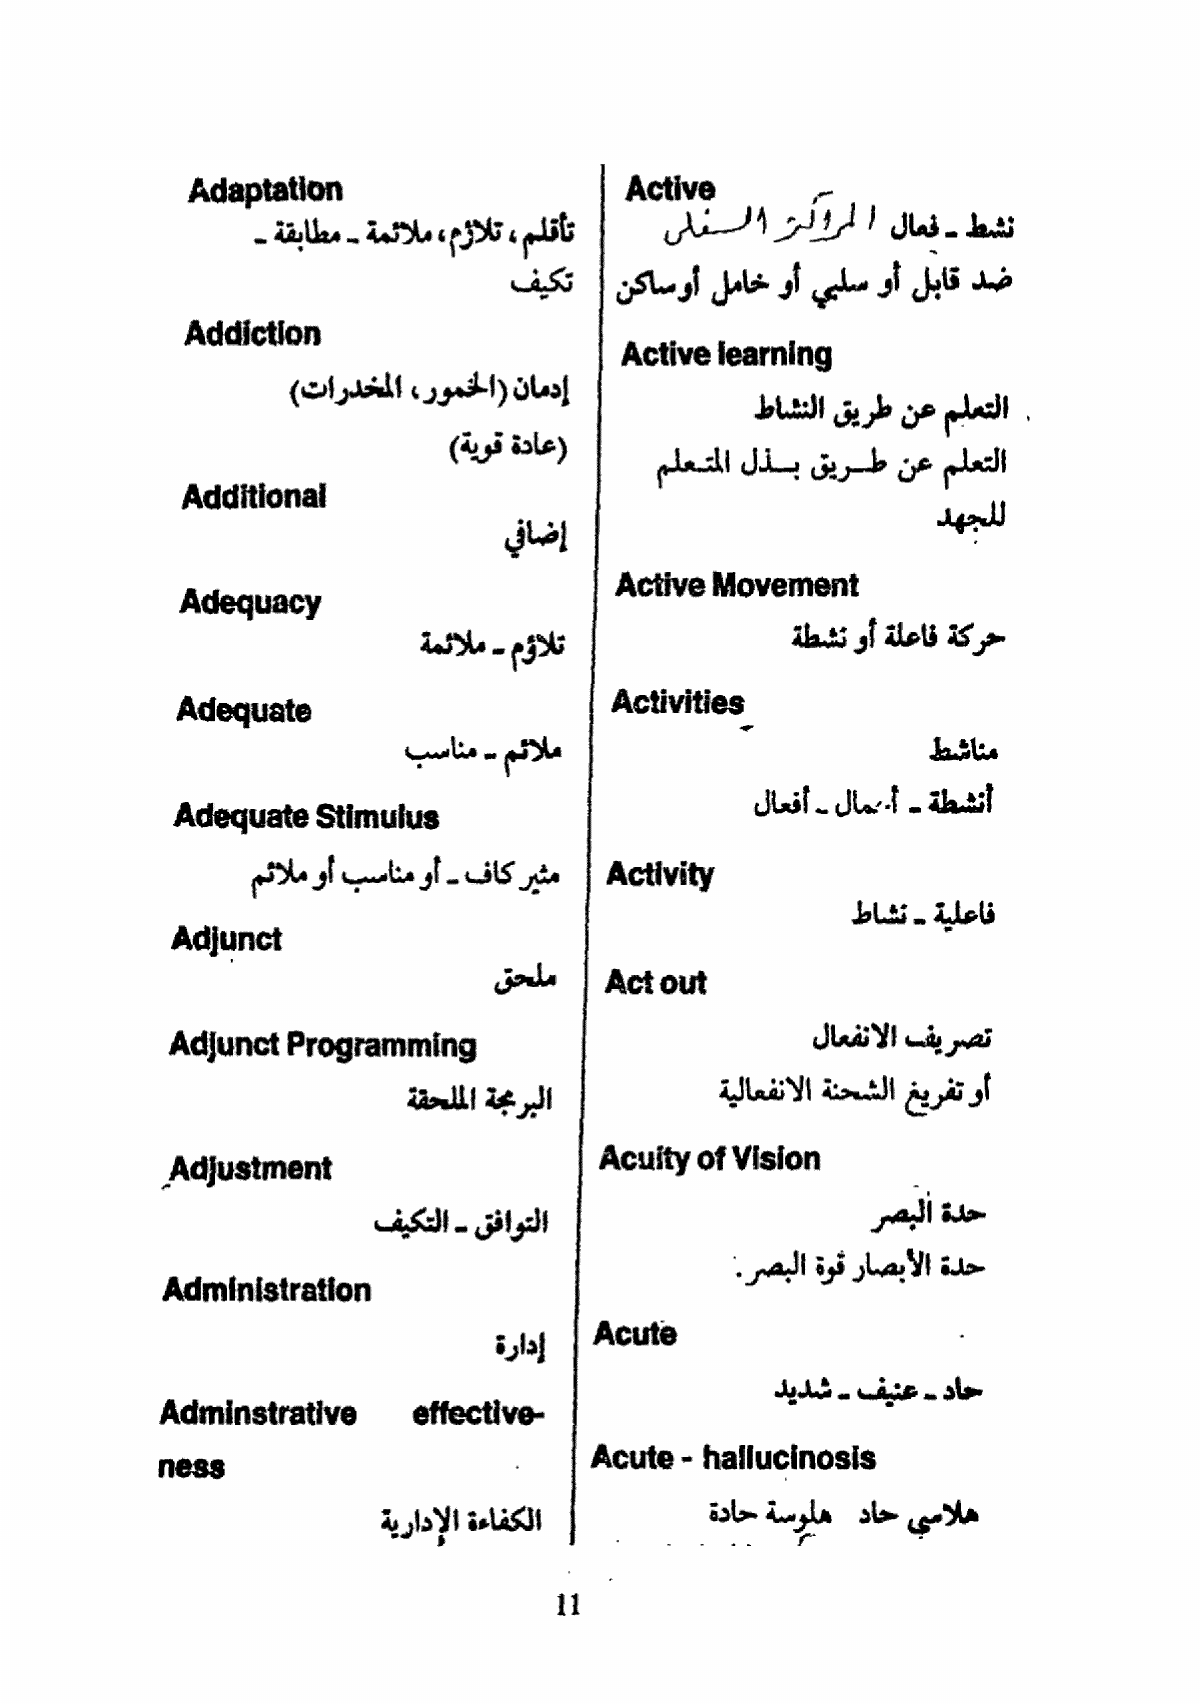 Active
نشط ـ فعال المراكز السفلى
ضد قابل أو سلبي أو خامل أو ساكن
Active learning
التعلم عن طريق النشاط
التعلم عن طريق بذل المتعلم
للجهد
Active Movement
حركة فاعلة أو نشطة
Activities
مناشط
أنشطة ـ أعمال ـ أفعال
Activity
فاعلية ـ نشاط
Act out
تصريف الانفعال
أو تفريغ الشحنة الانفعالية
Acuity of Vision
حدة البصر
حدة الأبصار قوة البصر.
Acute
حاد ـ عنيف ـ شديد
Acute - hallucinosis
هلاسي حاد هلوسة حادة
Adaptation
تأقلم، تلاؤم، ملائمة ـ مطابقة ـ
تكيف
Addiction
إدمان (الخمور، المخدرات)
(عادة قوية)
Additional
إضافي
Adequacy
تلاؤم ـ ملائمة
Adequate
ملائم ـ مناسب
Adequate Stimulus
مثير كاف ـ أو مناسب أو ملائم
Adjunct
ملحق
Adjunct Programming
البرمجة الملحقة
Adjustment
التوافق ـ التكيف
Administration
إدارة
Adminstrative effective-
ness
الكفاءة الإدارية
11